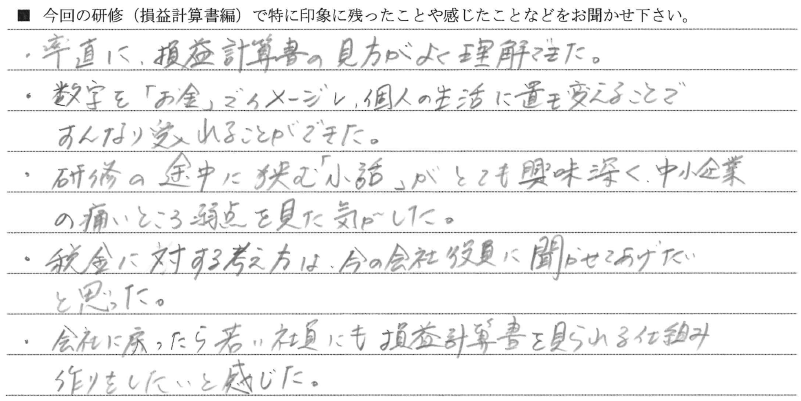 ■ 今回の研修（損益計算書編）で特に印象に残ったことや感じたことなどをお聞かせ下さい。
・率直に、損益計算書の見方がよく理解できた。
・数字を「お金」でイメージし、個人の生活に置き変えることで
すんなり受入れることができた。
・研修の途中に挟む「小話」がとても興味深く、中小企業
の痛いところ弱点を見た気がした。
・税金に対する考え方は、今の会社役員に聞かせてあげたい
と思った。
・会社に戻ったら若い社員にも損益計算書を見られる仕組み
作りをしたいと感じた。